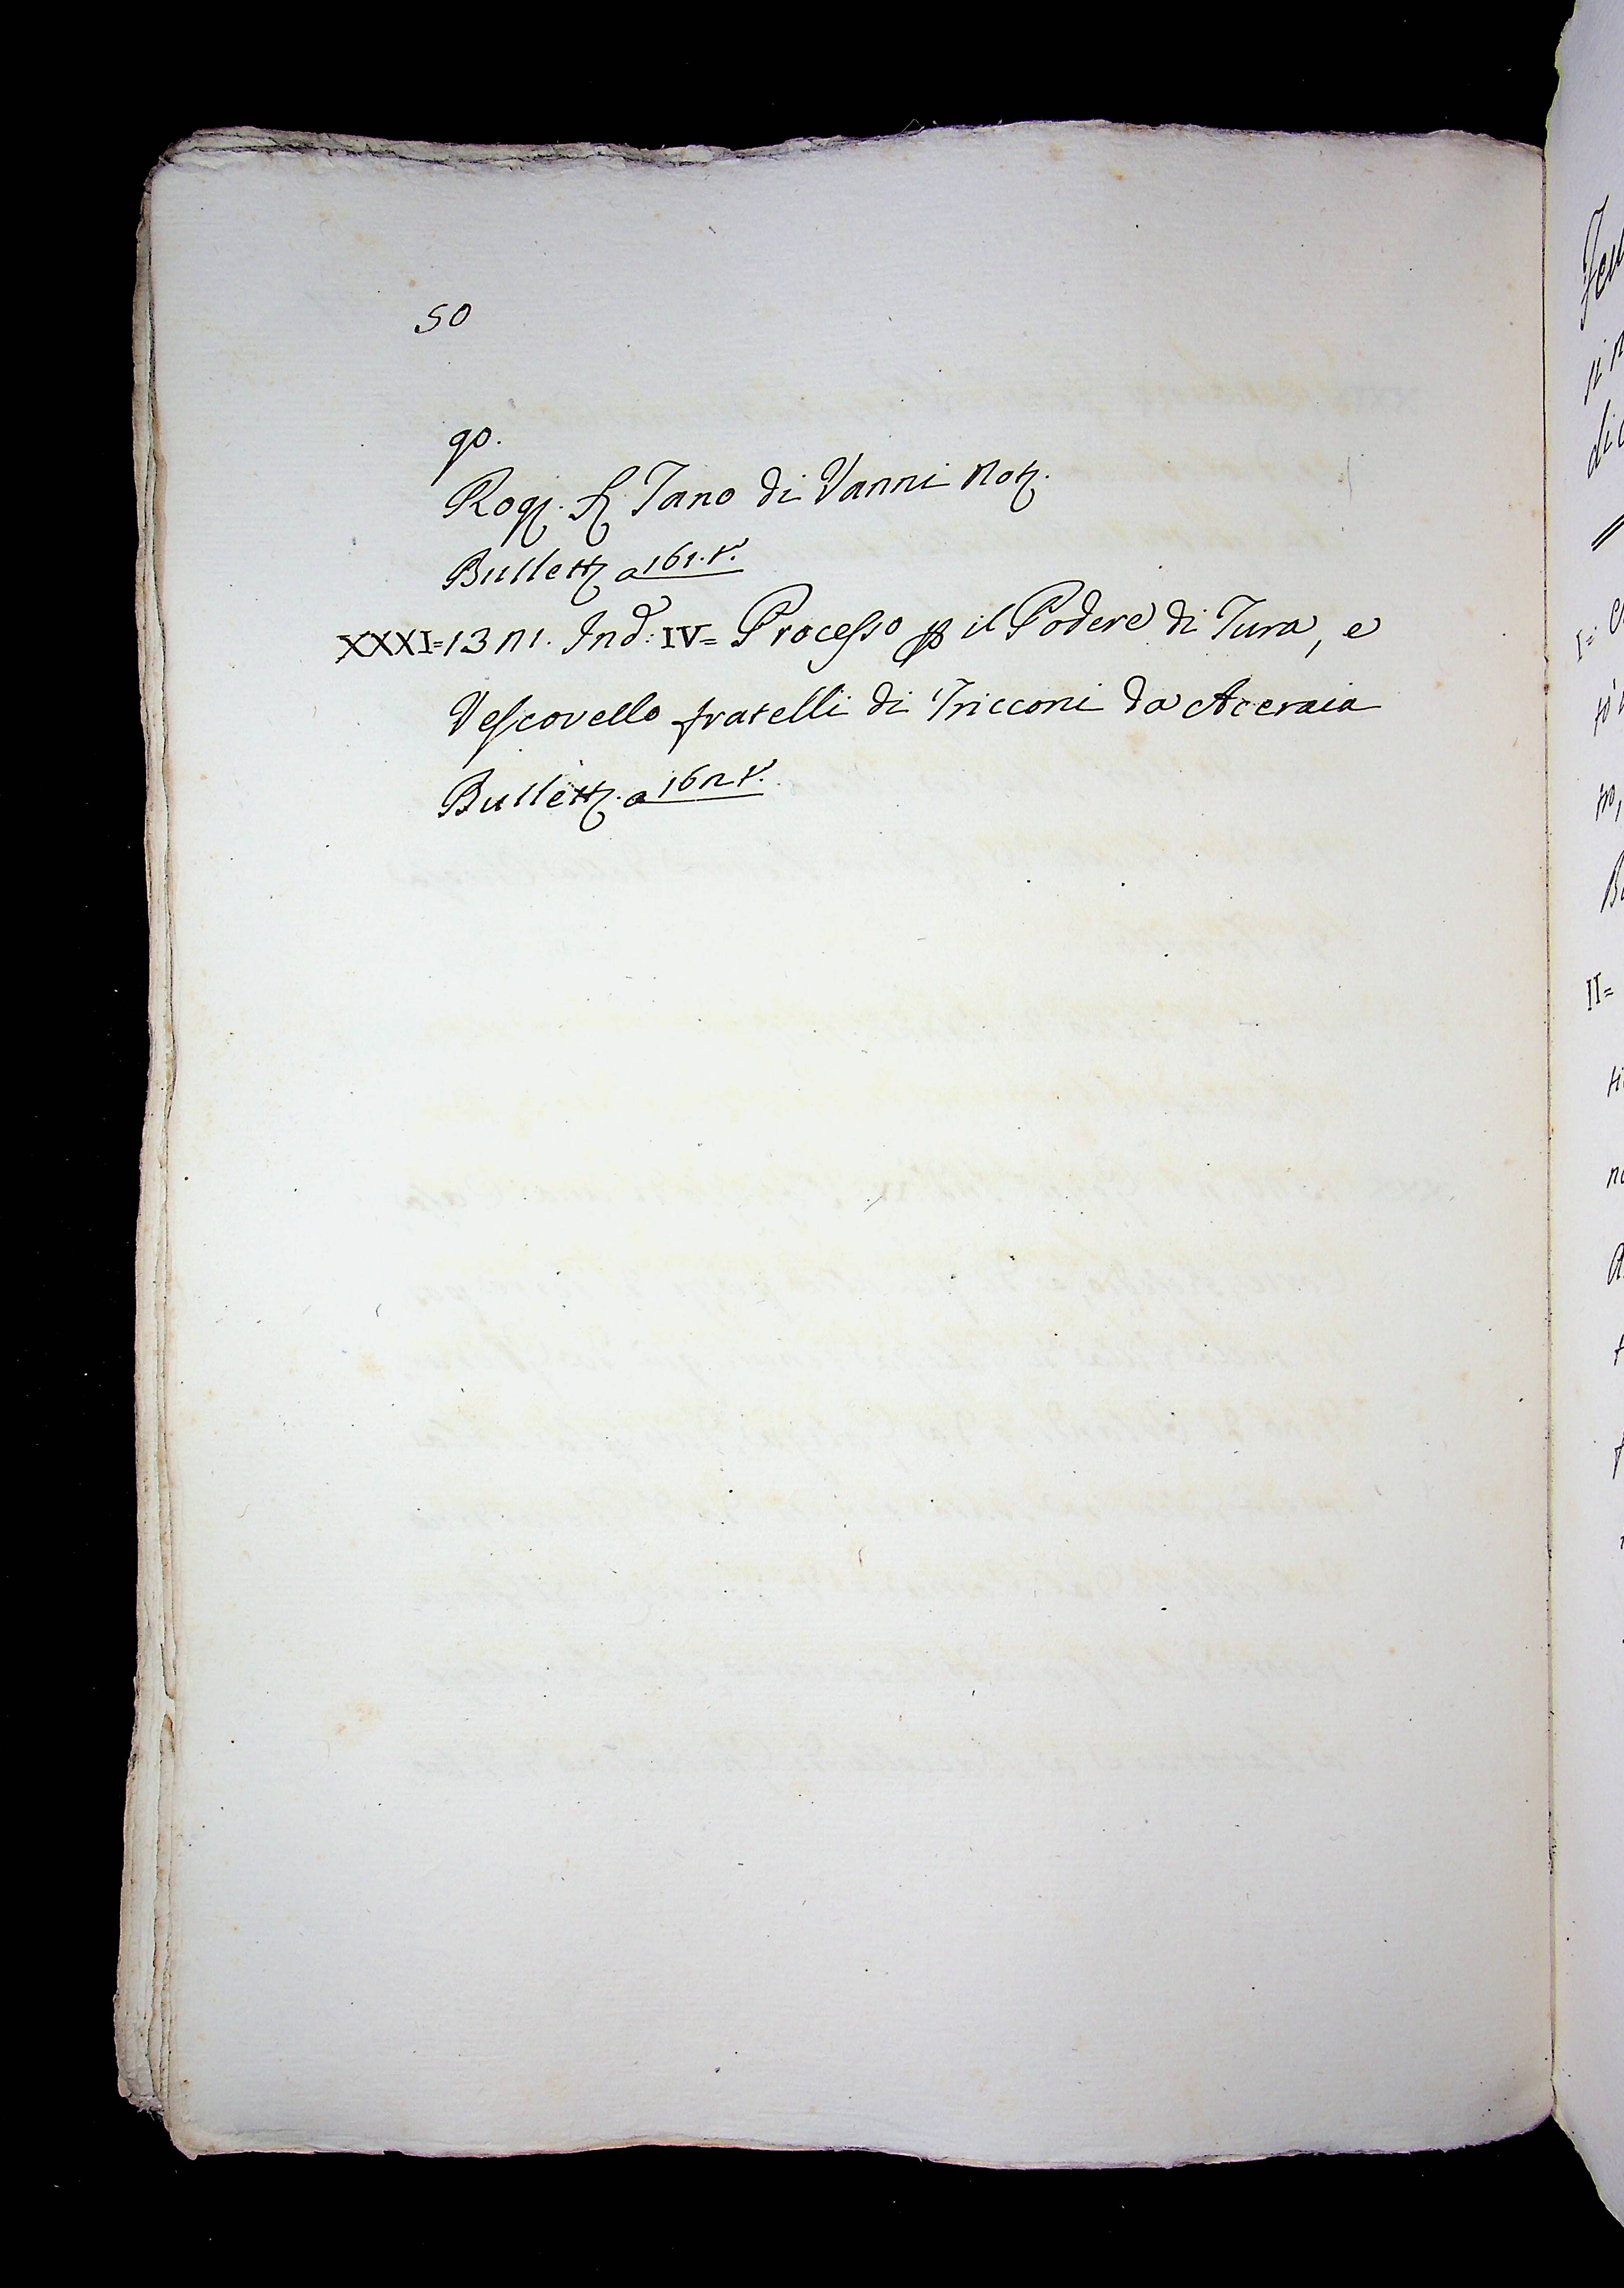 50
go.
Rog. S. Tano di Vanni Not.
Bullett. a 161. t.
XXXI = 1321. Ind: IV = Processo p il Podere di Tura, e
Vescovello fratelli di Tricconi da Aceraia
Bullett. a 162 t.